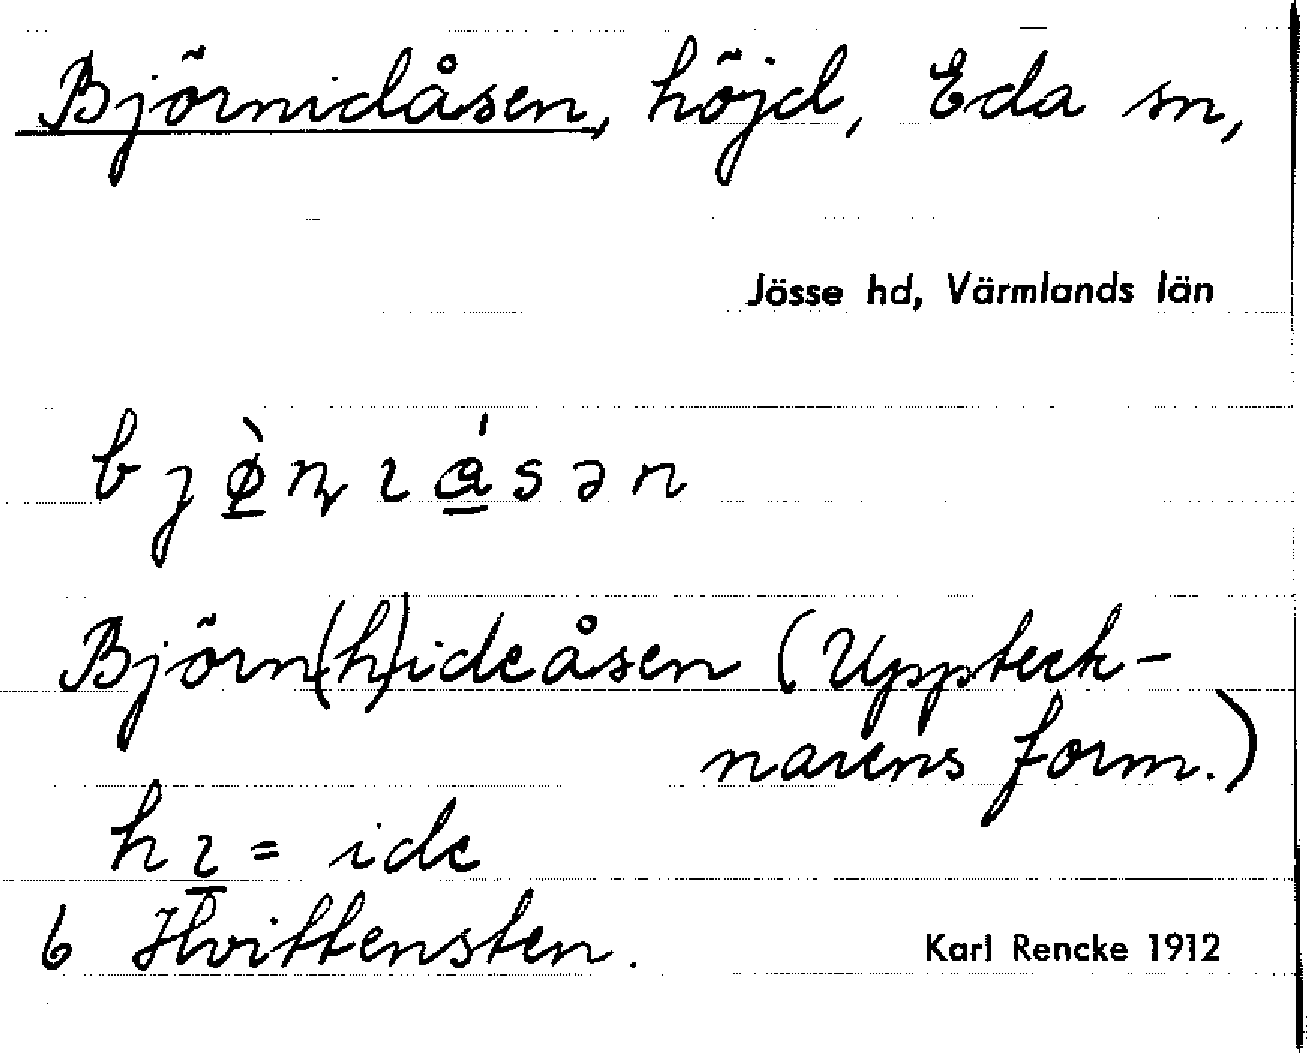 Björnidåsen, höjd, Eda sn,
Jösse hd, Värmlands län
bjø̲̀ɳɿá̲sən
Björn(h)ideåsen (Uppteck-
narens form.)
hɿ̲ = ide
6 Hvittensten.
Karl Rencke 1912